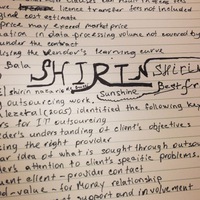 license transfer fees not included
cost estimate
price may exceed market price
in data processing volume not covered by
under the contract
vendor's learning curve
Bala SHIRIN Shirin
shirin Sunshine Best fri
outsourcing work.
(2005) identified the following key
for IT outsourcing
understanding of client's objectives
the right provider
idea of what is sought through outsou
attention to client's specific problems
client - provider contact
good-value-for money relationship
of support and involvement